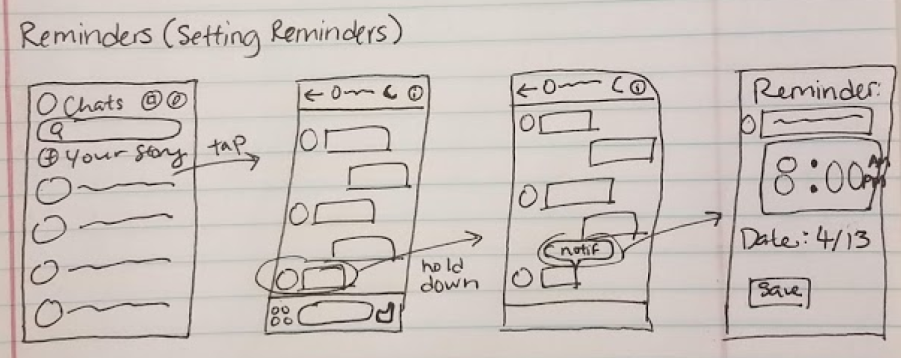 Reminders (Setting Reminders)
Chats
Your Story
tap
hold
down
notif
Reminder:
8:00 AM
PM
Date: 4/13
Save